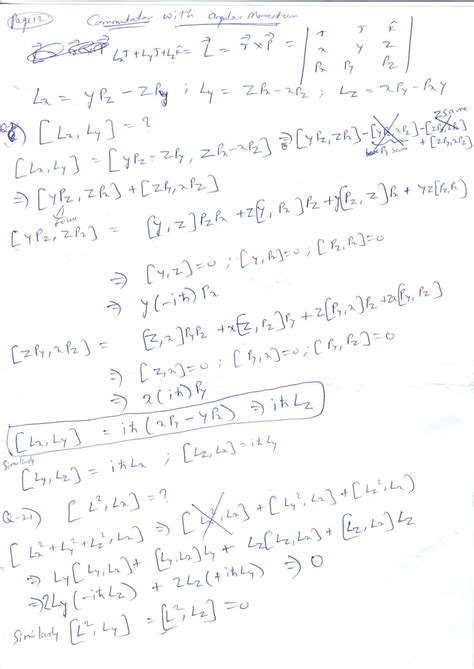 Page 12 Commutator with Angular Momentum
LxI + LyJ + Lzk̂ = L⃗ = r⃗ × P⃗ = | I J k̂ |
| x y z |
| Px Py Pz |
Lx = yPz − zPy ; Ly = zPx − xPz ; Lz = xPy − Pxy
[Lx, Ly] = ?
[Lx, Ly] = [yPz − zPy, zPx − xPz] ⇒ [yPz, zPx] − [yPz, xPz] − [zPy, zPx] + [zPy, xPz]
Pz same z same
⇒ [yPz, zPx] + [zPy, xPz]
[yPz, zPx] = [y, z]PzPx + z[y, Px]Pz + y[Pz, z]Px + yz[Pz, Px]
⇒ [y, z] = 0 ; [y, Px] = 0 ; [Pz, Px] = 0
⇒ y(−iħ)Px
[zPy, xPz] = [z, x]PyPz + x[z, Pz]Py + z[Py, x]Pz + zx[Py, Pz]
⇒ [z, x] = 0 ; [Py, x] = 0 ; [Py, Pz] = 0
⇒ x(iħ)Py
[Lx, Ly] = iħ(xPy − yPx) ⇒ iħLz
Similarly [Ly, Lz] = iħLx ; [Lz, Lx] = iħLy
Q-2) [L², Lx] = ?
[Lx² + Ly² + Lz², Lx] ⇒ [Lx², Lx] + [Ly², Lx] + [Lz², Lx]
⇒ Ly[Ly, Lx] + [Ly, Lx]Ly + Lz[Lz, Lx] + [Lz, Lx]Lz
⇒ 2Ly(−iħLz) + 2Lz(+iħLy) ⇒ 0
Similarly [L², Ly] = [L², Lz] = 0